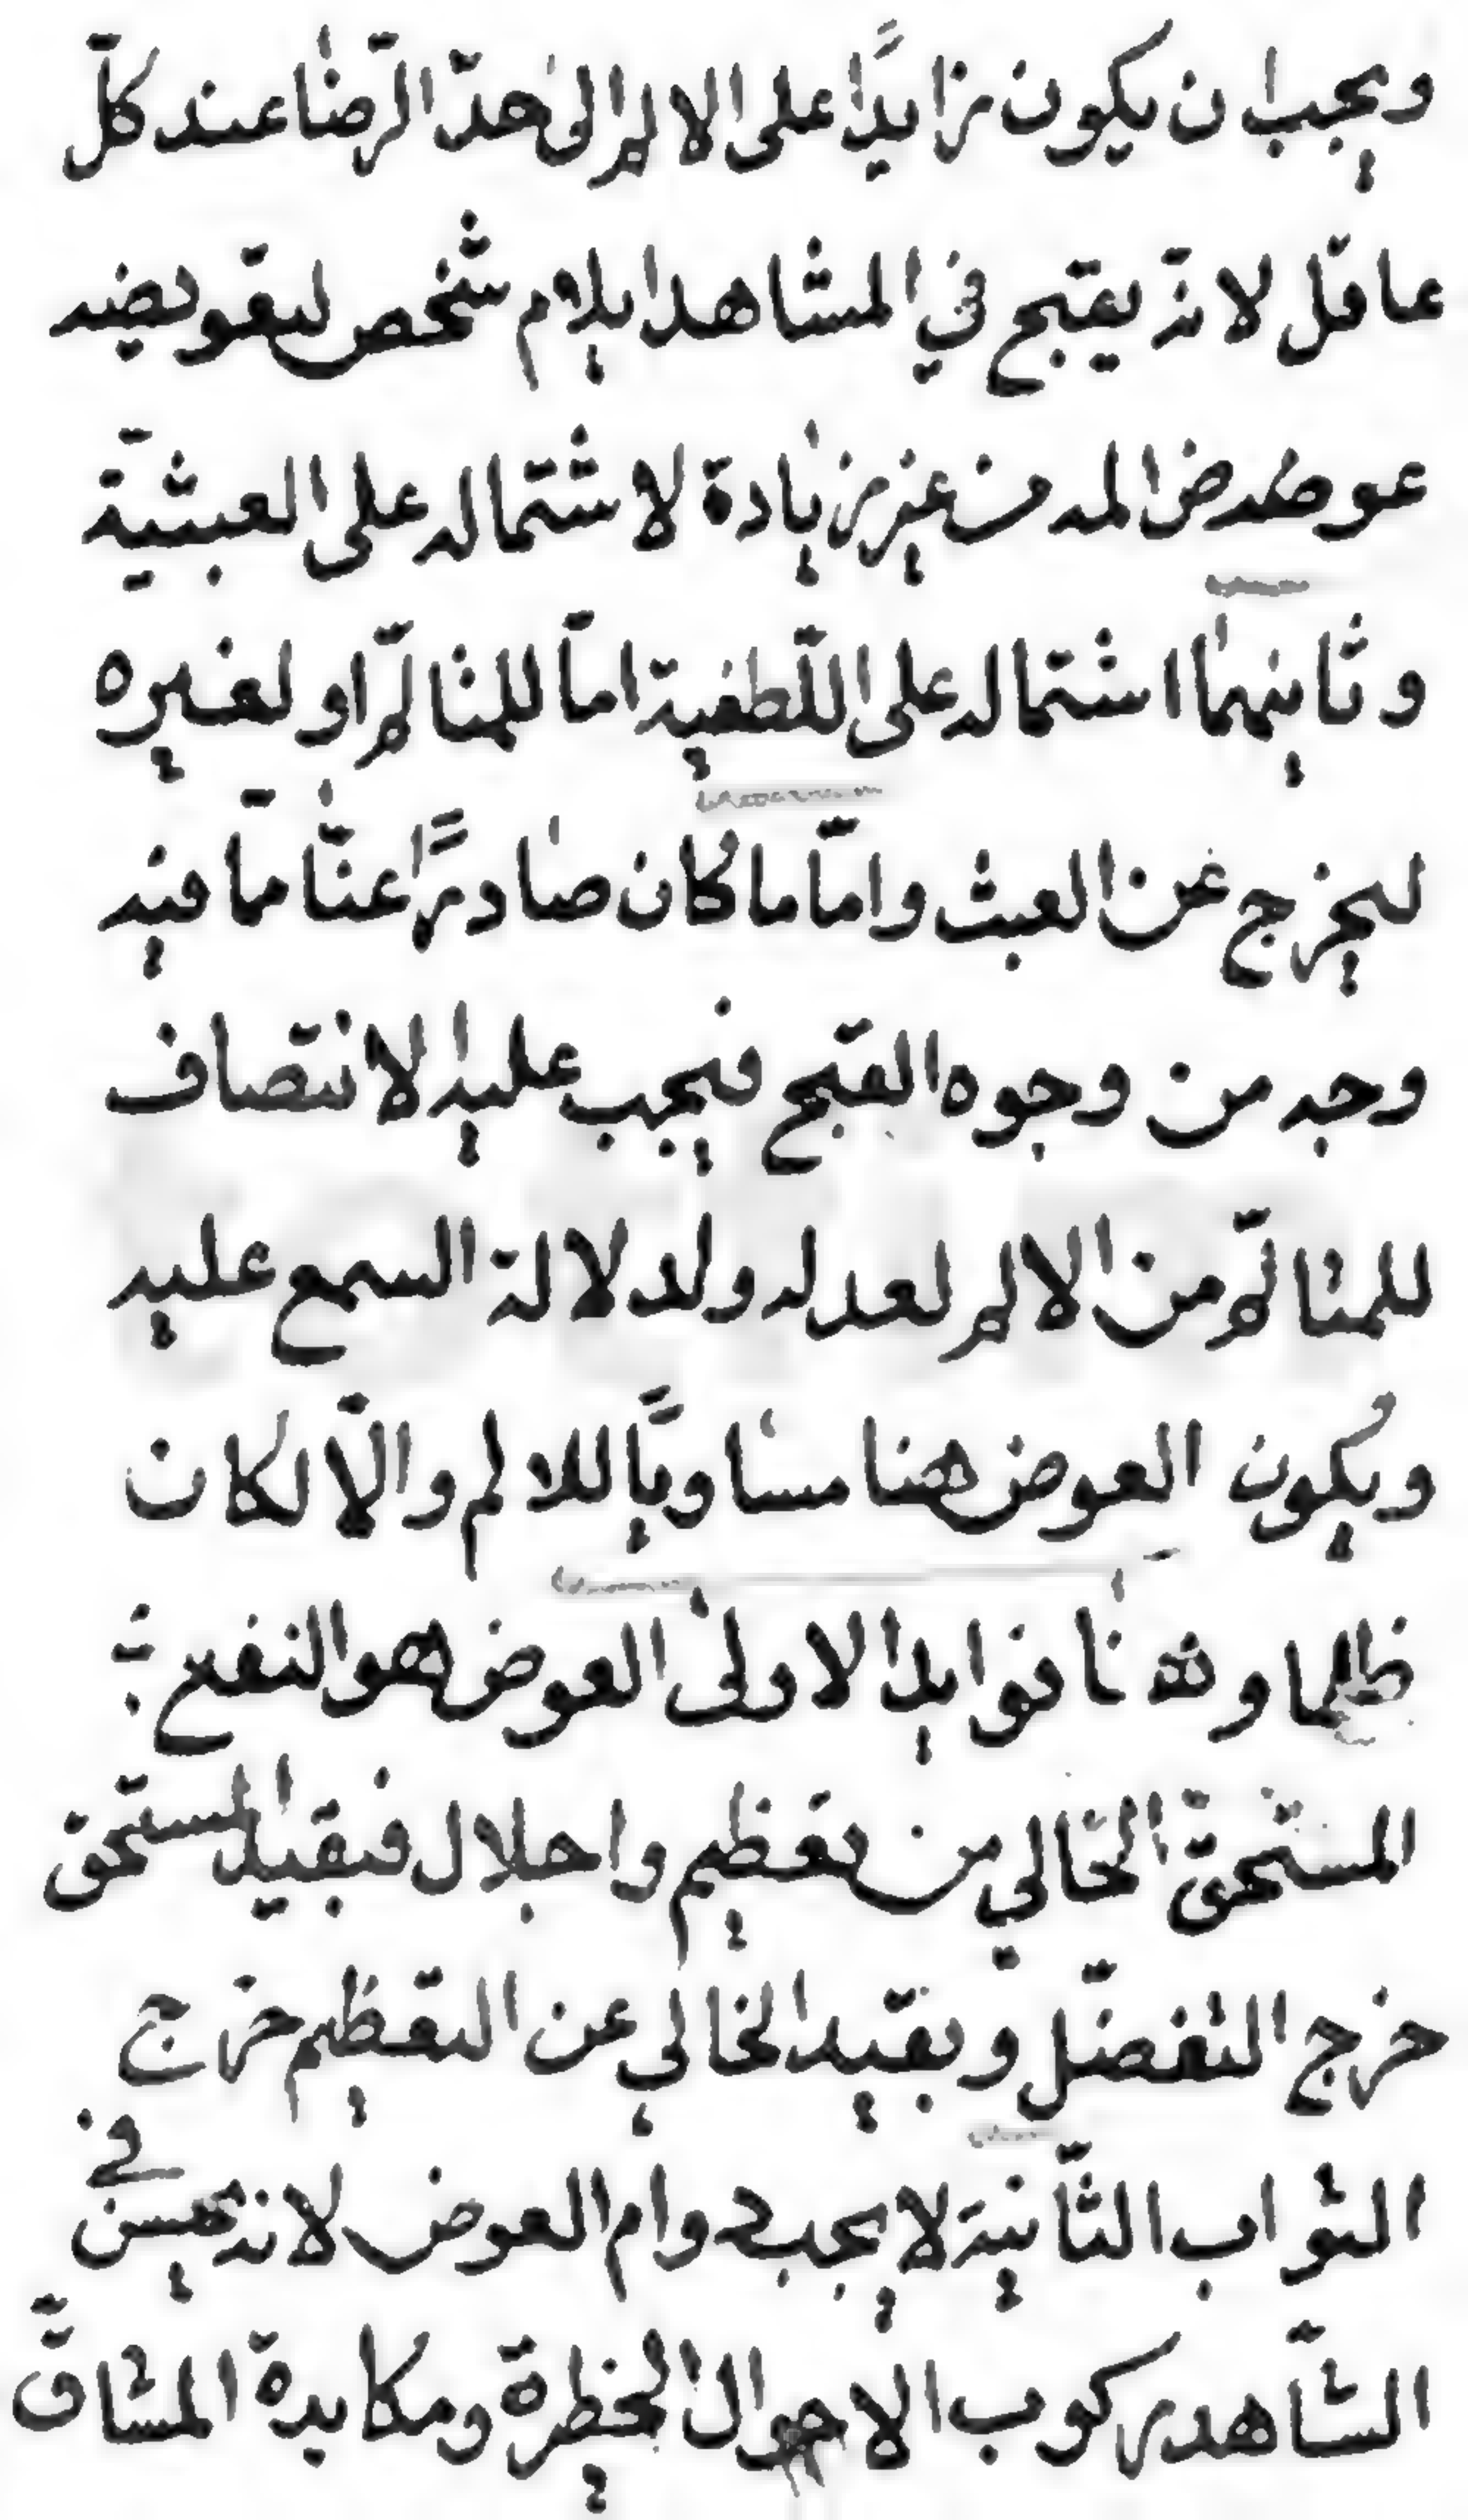 ويجب ان يكون زايدًا على الالم الى حدّ الرّضا عند كلّ
عاقل لانه يقبح في المشاهد ايلام شخص لتعويضه
عوض المه من غير زيادة لاشتماله على العبثيّة
وثانيهما اشتماله على اللّطفية امّا للمتالّم او لغيره
ليخرج عن العبث وامّا ما كان صادرًا عنّا ممّا فيه
وجه من وجوه القبح فيجب عليه الانتصاف
للمتالّم من الالم لعدله ولدلالة السمع عليه
ويكون العوض هنا مساويًا للالم والّا لكان
ظلما وهنا فوايد الاولى العوض هو النفع
المستحقّ الخالي من تعظيم واجلال فبقيد المستحق
خرج التفضّل وبقيد الخالي عن التعظيم خرج
الثواب الثّانية لا يجب دوام العوض لانه يحسن في
الشّاهد ركوب الاهوال الخطرة ومكابدة المشاقّ